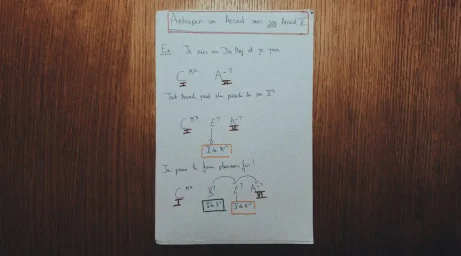 Anticiper un Accord avec son Accord V
Ex: Je suis en Do Maj et je joue
C M7 A-7
I VI
Tout Accord peut être précédé de son V7
C M7 E7 A-7
I VI
V de A-7
Je peux le faire plusieurs fois!
C M7 B7 E7 A-7
I VI